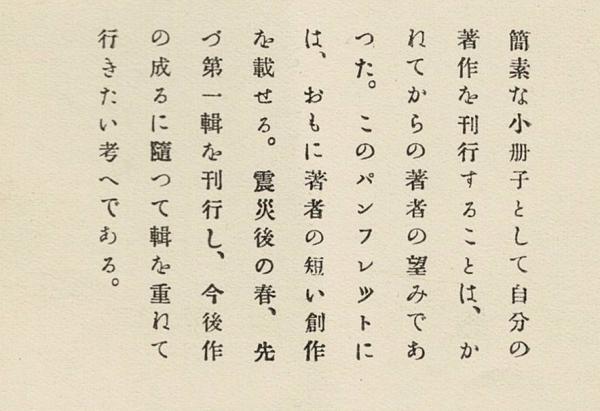 簡素な小册子として自分の
著作を刊行することは、か
ねてからの著者の望みであ
つた。このパンフレツトに
は、おもに著者の短い創作
を載せる。震災後の春、先
づ第一輯を刊行し、今後作
の成るに隨つて輯を重ねて
行きたい考へである。